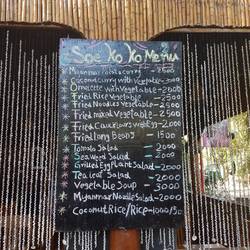 Soe Ko Ko Menu
Myanmar Potato Curry - 2500
Coconut Curry with Vegetable - 3000
Omelette with Vegetable - 2000
Fried Rice Vegetable - 2500
Fried Noodles Vegetable - 2500
Fried mixed Vegetable - 2500
Fried Cauliflours with Egg - 2000
Fried long Beans - 1500
Tomato Salad - 2000
Sea weed Salad - 2000
Grilled Egg Plant Salad - 2500
Tea leaf Salad - 2000
Vegetable Soup - 3000
Myanmar Noodle Salad - 2000
Coconut Rice/Rice - 1000/50